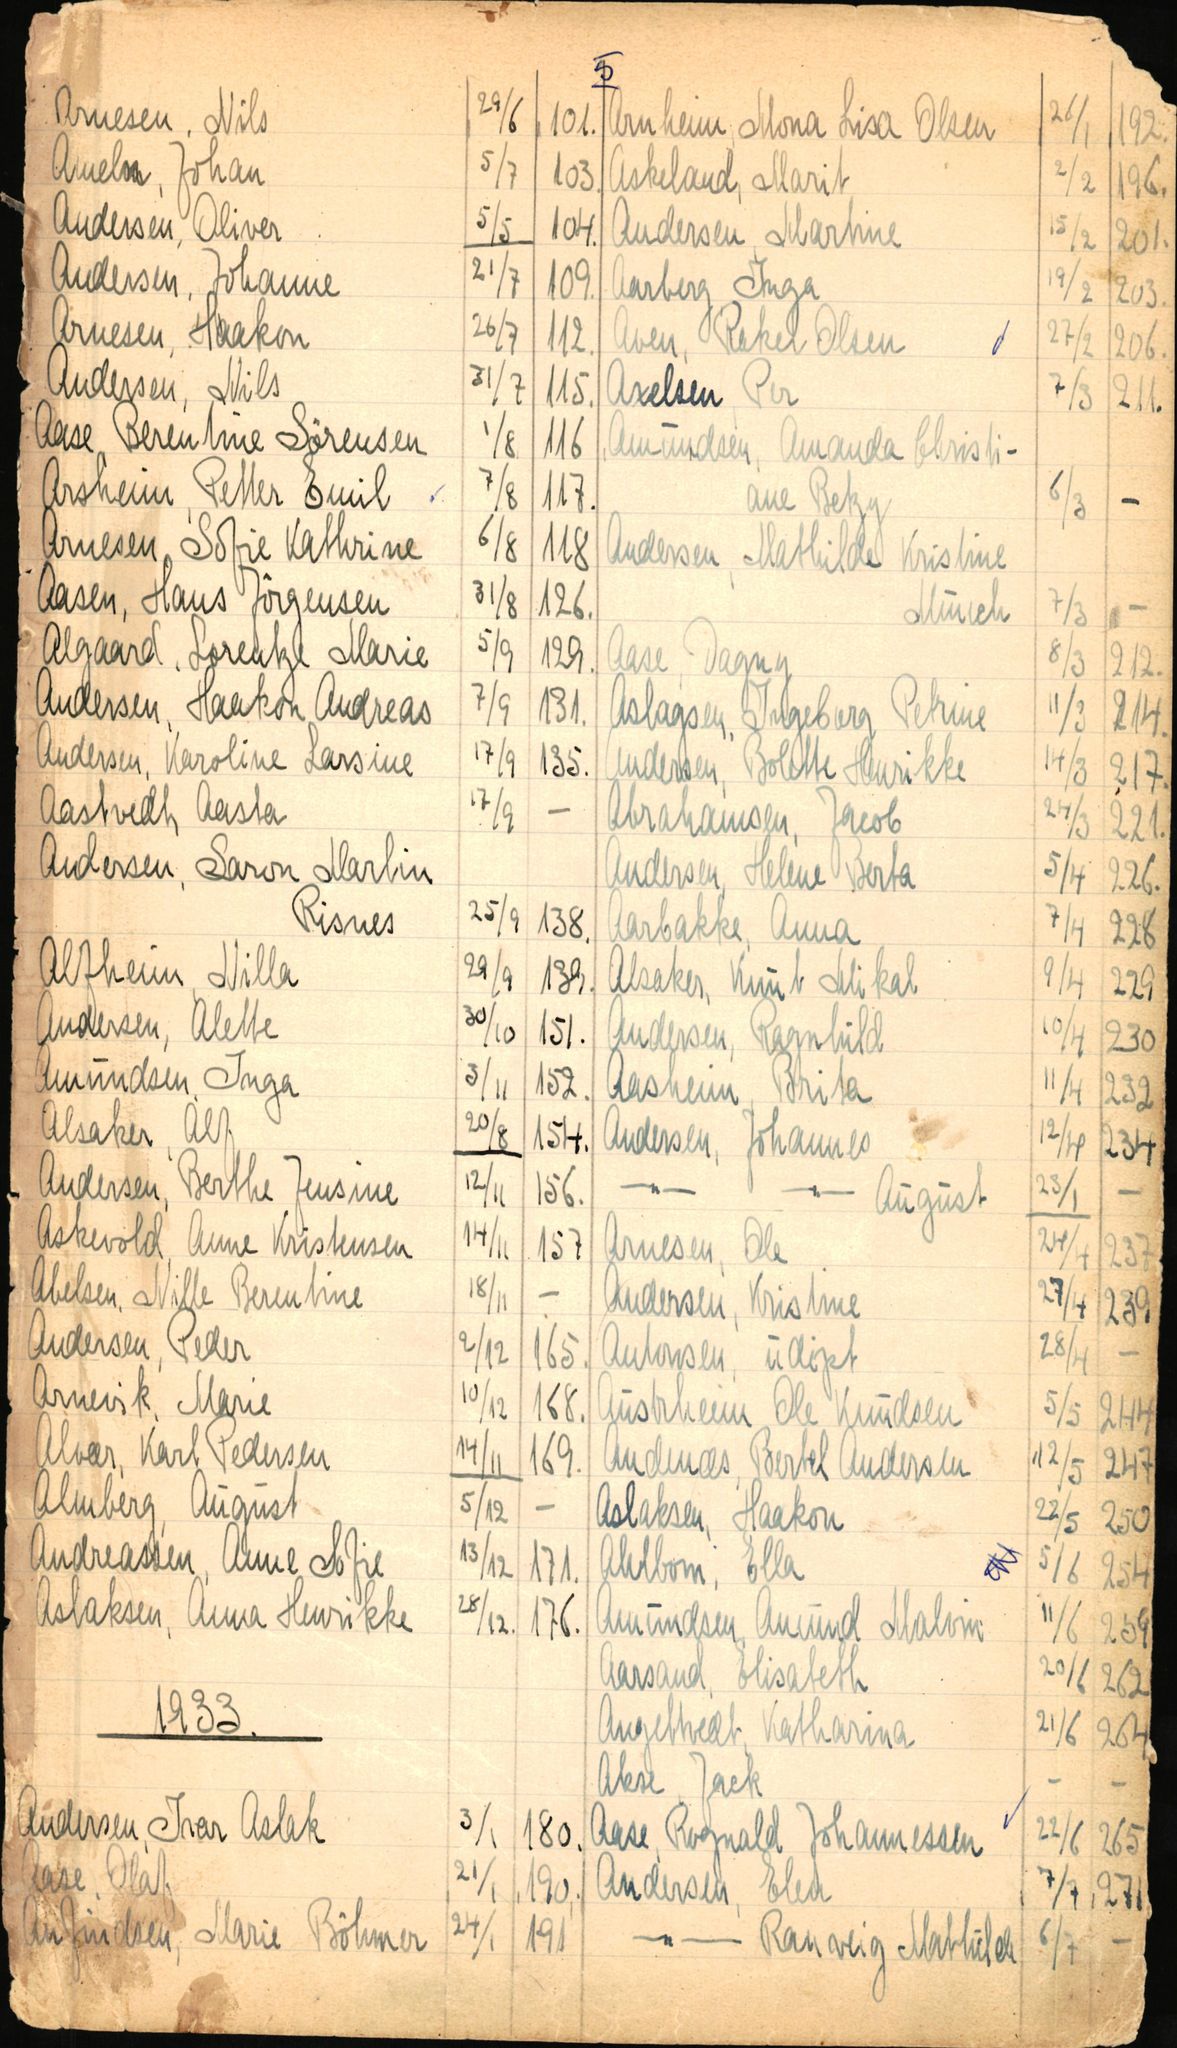 5
Arnesen, Nils 29/6 101.
Johan 5/7 103
Andersen, Oliver 5/5 104.
Andersen, Johanne 21/7 109.
Arnesen, Haakon 26/7 112.
Andersen, Nils 31/7 115.
Aase, Berentine Sörensen 1/8 116
Arsheim, Petter Emil 7/8 117.
Arnesen, Sofie Kathrine 6/8 118
Aasen, Hans Jörgensen 31/8 126.
Algaard, Lorentze Marie 5/9 129.
Andersen, Haakon Andreas 7/9 131.
Andersen, Karoline Larsine 17/9 135.
Aastvedt, Aasta 17/9 —
Andersen, Saron Martin
Risnes 25/9 138.
Alfheim, Nilla 29/9 139.
Andersen, Alette 30/10 151.
Amundsen, Inga 3/11 152.
Alsaker, Alf 20/8 154.
Andersen, Berthe Jensine 12/11 156.
Askevold, Anne Kristensen 14/11 157
Abelsen, Nille Berentine 18/11 —
Andersen, Peder 2/12 165.
Arnevik, Marie 10/12 168.
Alvær, Karl Pedersen 14/11 169.
Almberg, August 5/12 —
Andreassen, Anne Sofie 13/12 171.
Aslaksen, Anna Henrikke 28/12. 176.
1933.
Andersen, Ivar Aslak 3/1 180.
Aase, Olaf 21/1 190.
Anfindsen, Marie Böhmer 24/1 191
Arnheim, Mona Lisa Olsen 26/1 192.
Askeland, Marit 2/2 196.
Andersen, Martine 15/2 201.
Aarberg Inga 19/2 203.
Aven, Rakel Olsen 27/2 206.
Axelsen, Per 7/3 211.
Amundsen, Amanda Christi-
ane Betzy 6/3 —
Andersen, Mathilde Kristine
Münch 7/3 —
Aase, Dagny 8/3 212.
Aslagsen, Ingeborg Petrine 11/3 214.
Andersen, Bolette Henrikke 14/3 217.
Abrahamsen, Jacob 24/3 221.
Andersen, Helene Berta 5/4 226.
Aarbakke, Anna 7/4 228
Alsaker, Knut Mikal 9/4 229
Andersen, Ragnhild 10/4 230
Aasheim, Brita 11/4 232
Andersen, Johannes 12/4 234
—"— —"— August 23/1 —
Arnesen, Ole 24/4 237
Andersen, Kristine 27/4 239
Antonsen, udöpt 28/4 —
Austrheim Ole Knudsen 5/5 244
Andenæs, Bertel Andersen 12/5 247
Aslaksen, Haakon 22/5 250
Ahlbom, Ella 5/6 254
Amundsen, Amund Malvin 11/6 259
Aarsand, Elisabeth 20/6 262
Angeltvedt, Katharina 21/6 264
Akse, Jack — —
Aase, Rognald Johannessen 22/6 265
Andersen, Elen 7/7 271
—"— Ranveig Mathilde 6/7 —